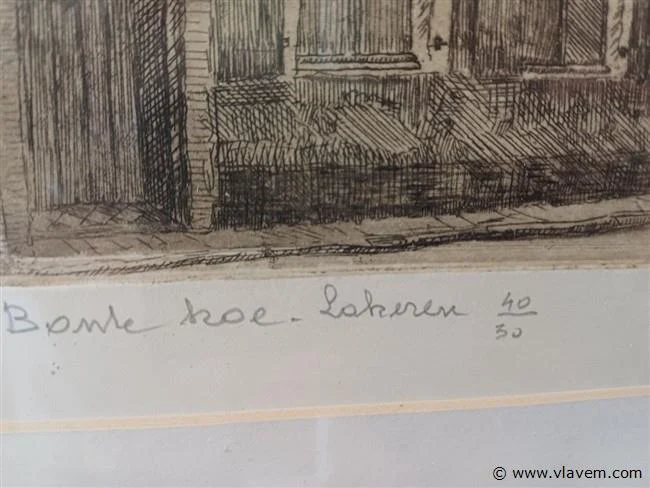 Bonte koe - Lokeren 40/50
© www.vlavem.com